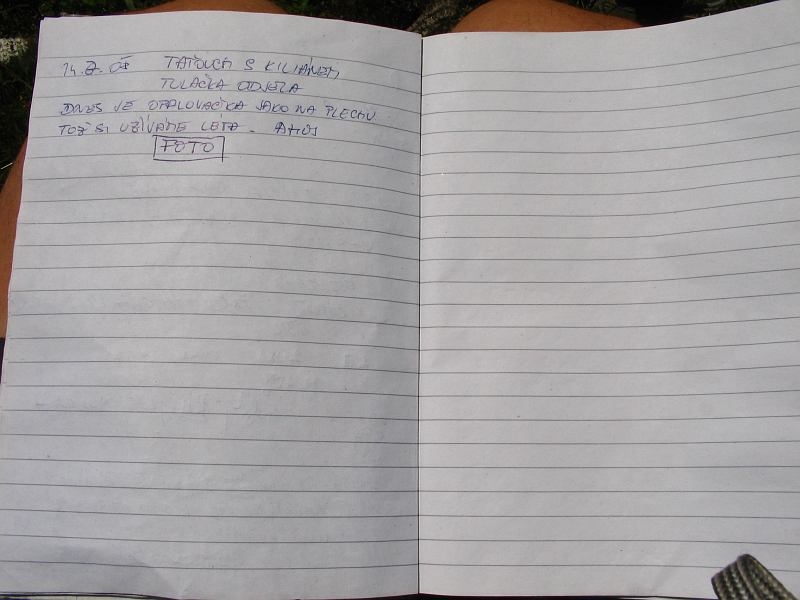 14.7.08 TAŤOUCH S KILIÁNEM
TULAČKA ODJELA
DNES JE OPALOVAČKA JAKO NA PLECHU
TOŽ SI UŽÍVÁME LÉTA. AHOJ
FOTO